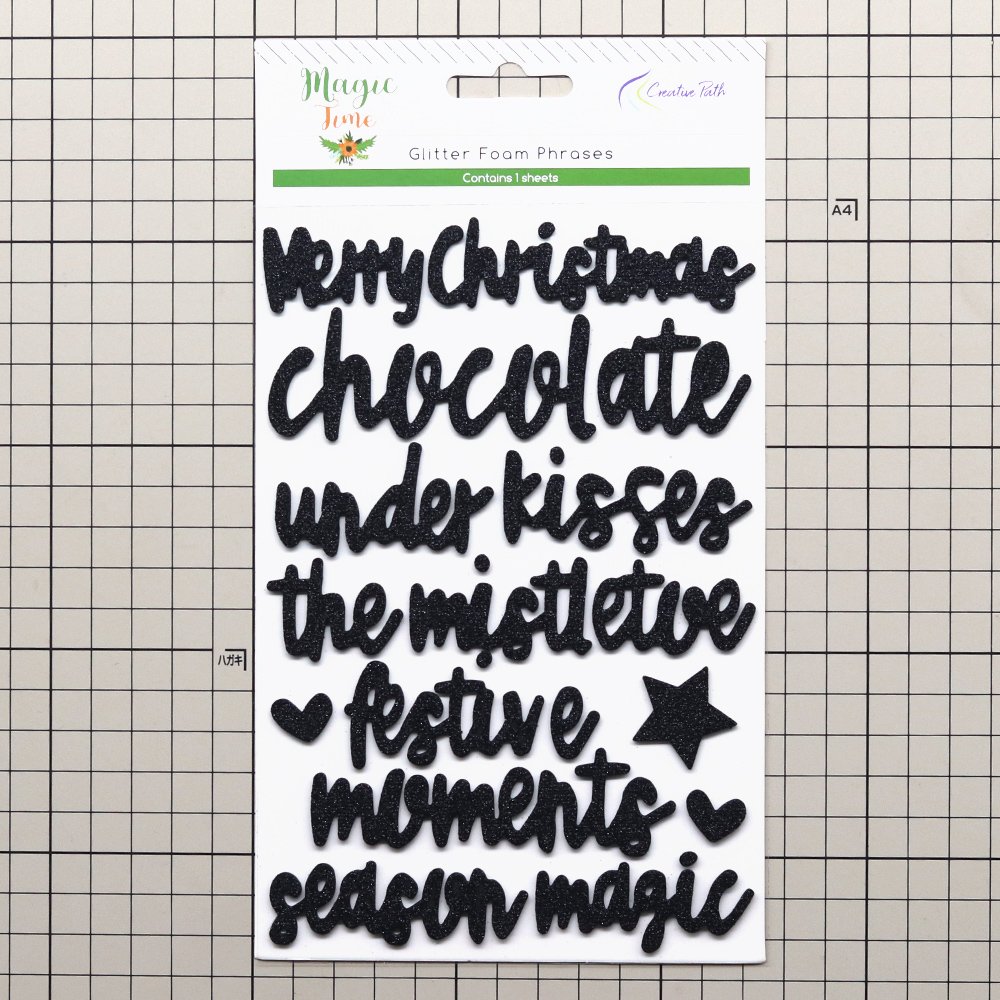 Magic
Time
Creative Path
Glitter Foam Phrases
Contains 1 sheets
A4
Merry Christmas
chocolate
under kisses
the mistletoe
ハガキ
festive
moments
season magic